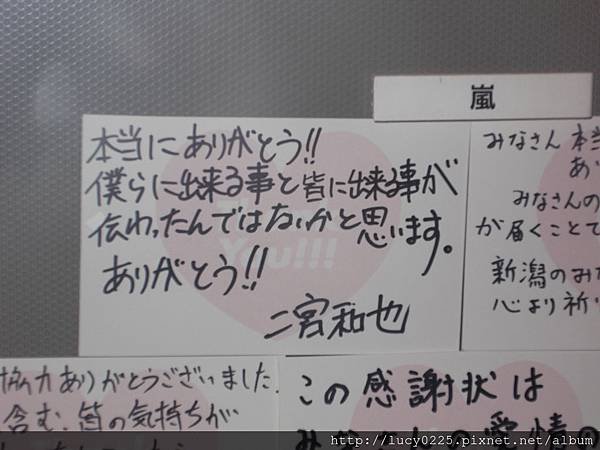 嵐
本当にありがとう!!
僕らに出来る事と皆に出来る事が
伝わったんではないかと思います。
ありがとう!!
二宮和也
You!!!
みなさん 本当
あり
みなさんの
が届くことて
新潟のみな
心より祈り
協力ありがとうございました。
含む、皆の気持ちが
この感謝状は
の愛情の
http://lucy0225.pixnet.net/album